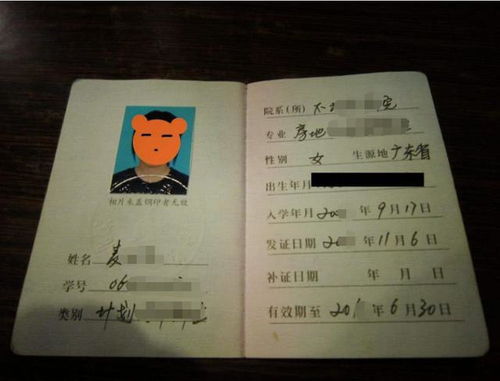 相片未盖钢印者无效
姓名 麦
学号 06
类别 计划
院系(所) 不
专业 房地
性别 女 生源地 广东省
出生年月
入学年月 20 年 9 月 17 日
发证日期 20 年 11 月 6 日
补证日期 年 月 日
有效期至 20 年 6 月 30 日